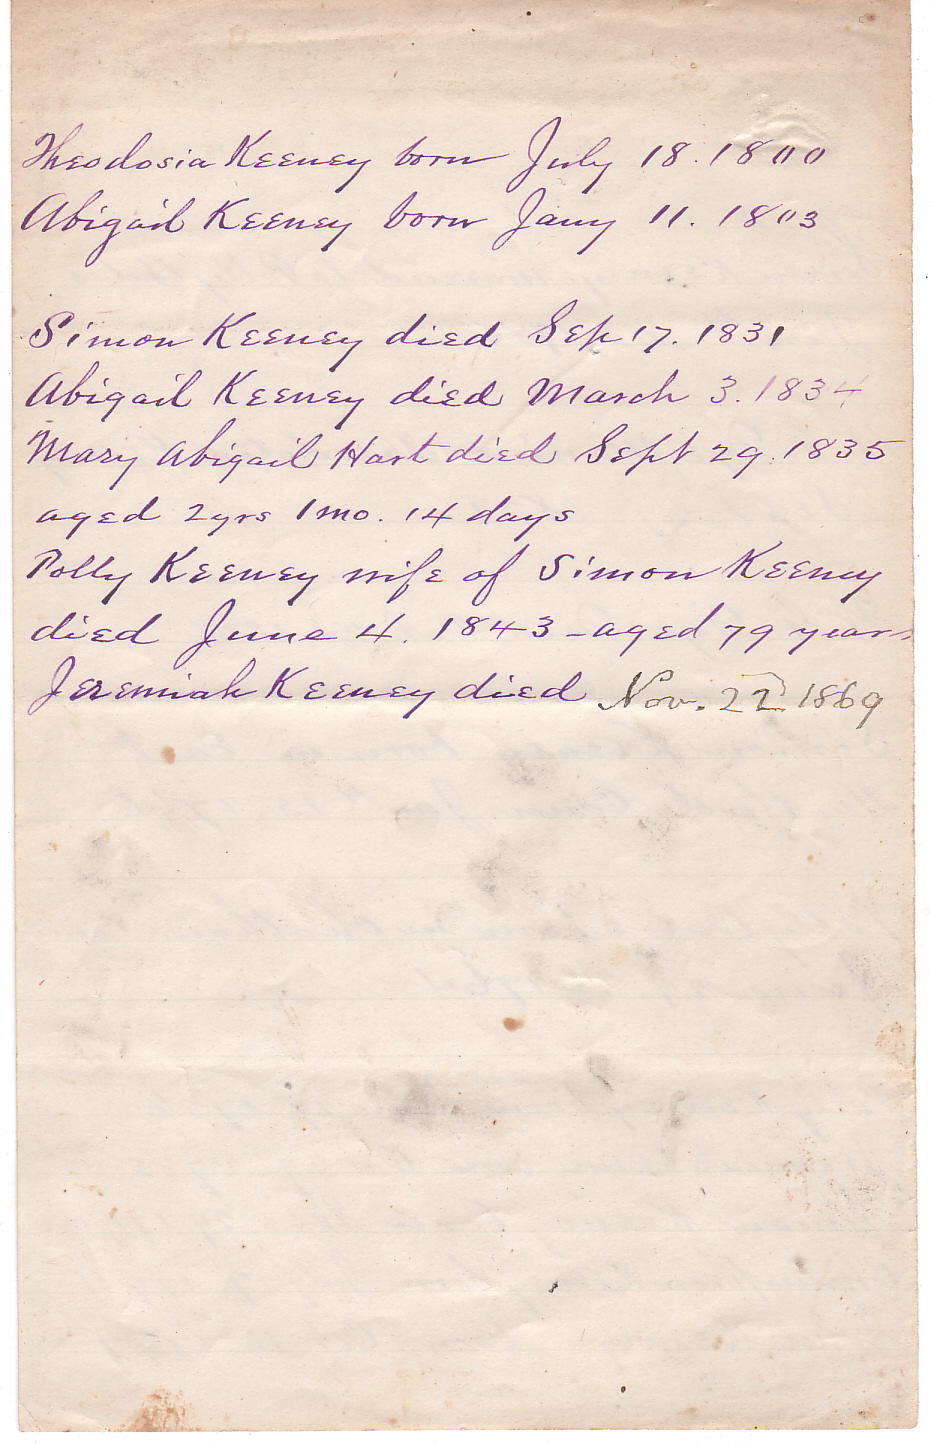 Theodosia Keeney born July 18. 1800
Abigail Keeney born Jany 11. 1803
Simon Keeney died Sep 17. 1831
Abigail Keeney died March 3. 1834
Mary Abigail Hart died Sept 29. 1835
aged 2yrs 1mo. 14 days
Polly Keeney wife of Simon Keeney
died June 4. 1843 - aged 79 years
Jeremiah Keeney died Nov. 22 1869